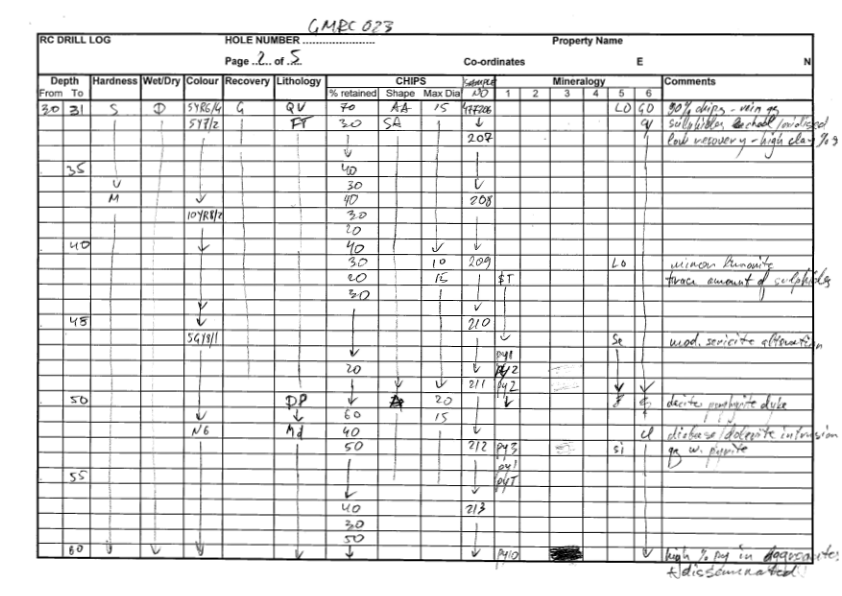 GMRC 023
RC DRILL LOG HOLE NUMBER .................... Property Name
Page ..2.. of .5. Co-ordinates E N
Depth Hardness Wet/Dry Colour Recovery Lithology CHIPS SAMPLE Mineralogy Comments
From To % retained Shape Max Dia NO 1 2 3 4 5 6
30 31 S D 5YR6/4 G QV 70 AA 15 477206 LO GO 90% chips - vein qz
5Y7/2 FT 30 SA ↓ sulphides leached/oxidised
207 low recovery - high clay %
↓
35 40
↓ 30 ↓
M ↓ 40 208
10YR8/2 30
20
40 ↓ 40 ↓ ↓
30 10 209 LO minor limonite
20 15 $T trace amount of sulphides
30
↓ ↓
45 ↓ 210
5GY8/1 ↓ Se mod. sericite alteration
↓ py1
20 ↓ py2
↓ ↓ 211 py2 ↓ ↓
50 DP ↓ 20 ↓ dacite porphyrite dyke
↓ ↓ 60 15
N6 Md 40 ↓ cl diabase/dolerite intrusion
50 212 py3 si qz w. pyrite
py1
55 pyT
↓ ↓
40 213
30
50
60 ↓ ↓ ↓ ↓ ↓ ↓ py10 ↓ high % py in
+ disseminated